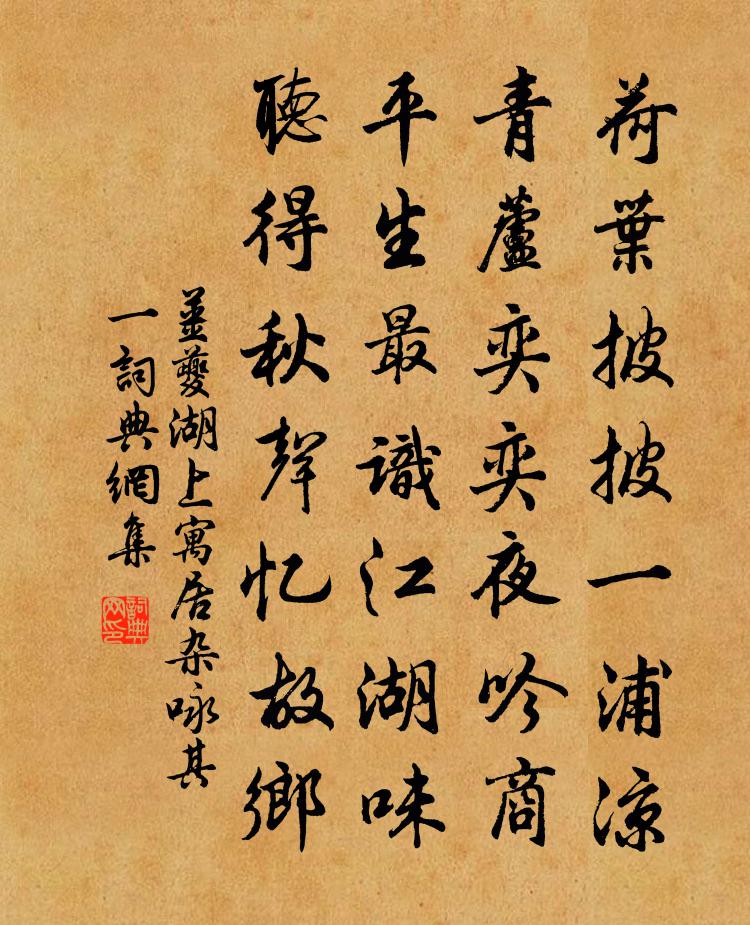 荷葉披披一浦凉
青蘆奕奕夜吟商
平生最識江湖味
聽得秋聲忆故鄉
姜夔湖上寓居杂咏其
一詞典網集
詞典网印